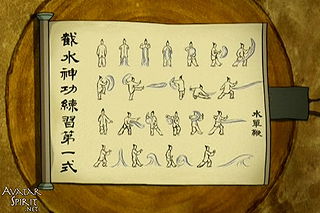 截水神功練習第一式
水單鞭
AVATAR
SPIRIT.NET